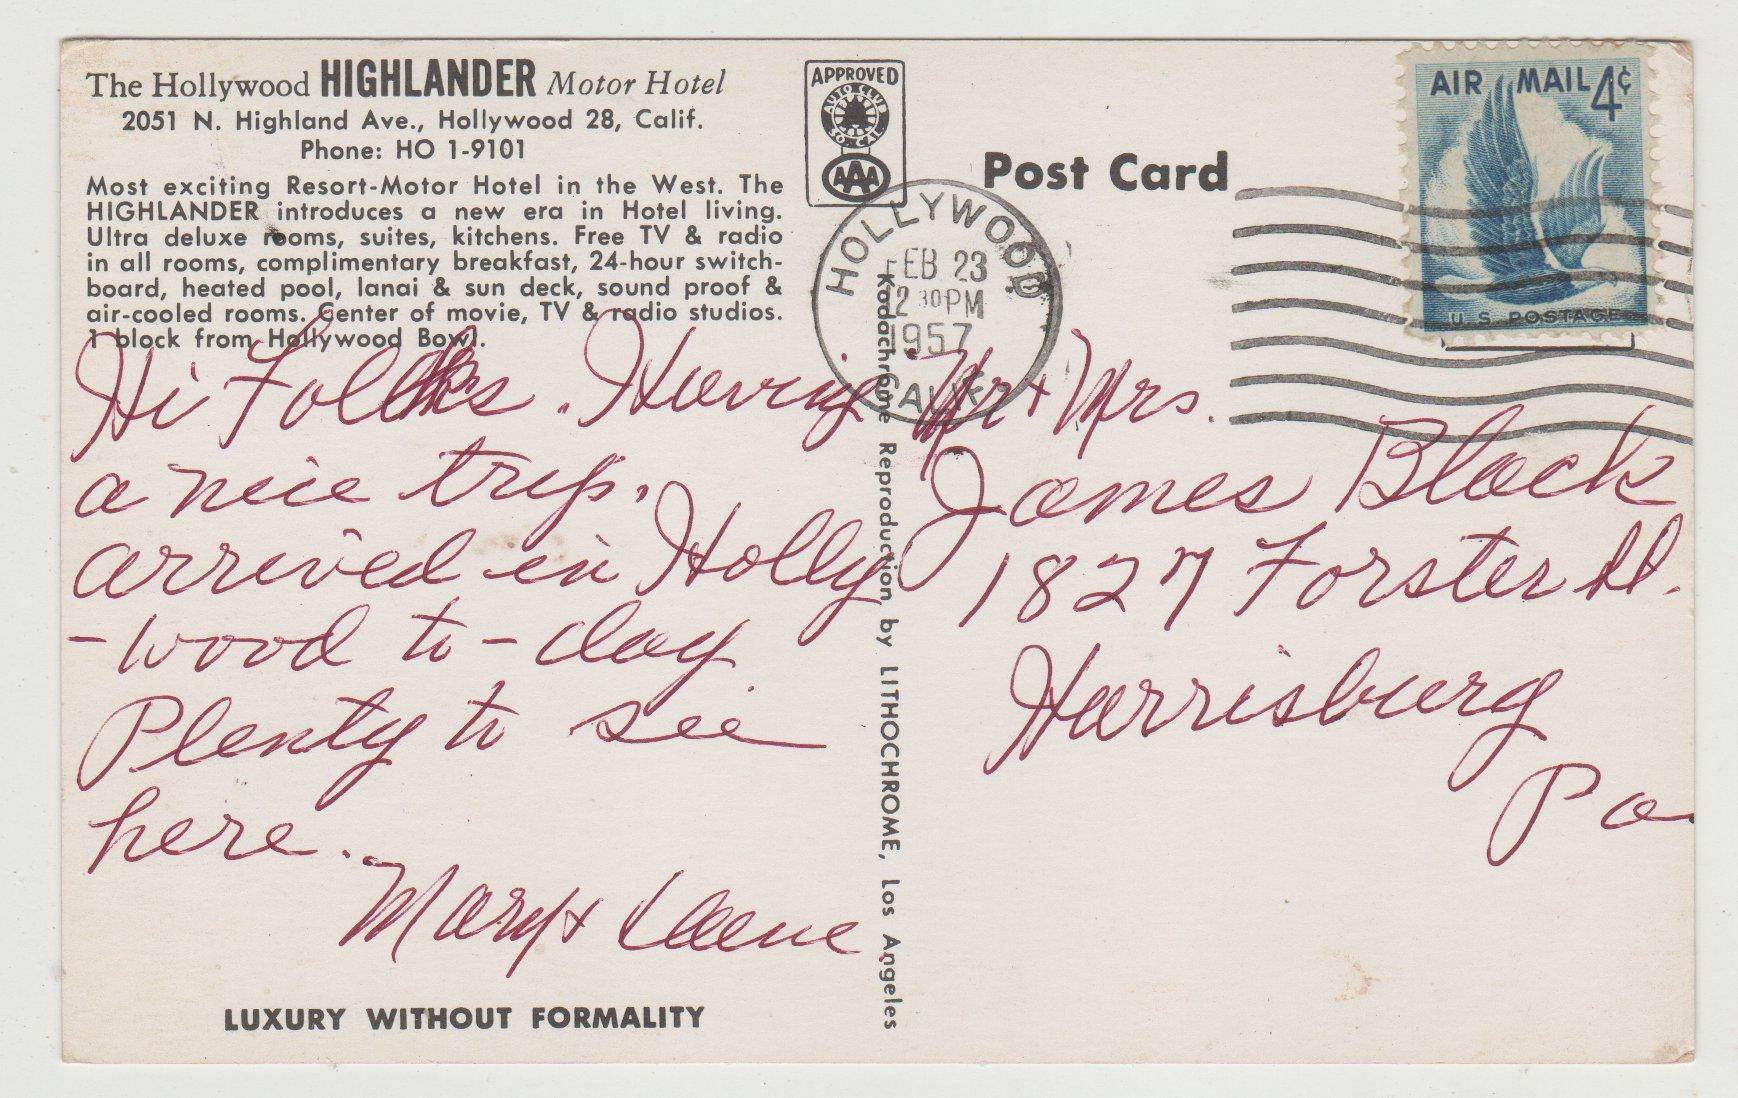 The Hollywood HIGHLANDER Motor Hotel
2051 N. Highland Ave., Hollywood 28, Calif.
Phone: HO 1-9101
Most exciting Resort-Motor Hotel in the West. The
HIGHLANDER introduces a new era in Hotel living.
Ultra deluxe rooms, suites, kitchens. Free TV & radio
in all rooms, complimentary breakfast, 24-hour switch-
board, heated pool, lanai & sun deck, sound proof &
air-cooled rooms. Center of movie, TV & radio studios.
1 block from Hollywood Bowl.
Hi Folks. Having
a nice trip.
arrived in Holly
-wood to-day
Plenty to see
here.
Mary &
LUXURY WITHOUT FORMALITY
APPROVED
AUTO CLUB
SO. CAL
AAA
Post Card
HOLLYWOOD
FEB 23
2 30 PM
1957
CALIF.
Kodachrome Reproduction by LITHOCHROME, Los Angeles
AIR MAIL 4¢
U.S. POSTAGE
Mr & Mrs.
James Black
1827 Forster St.
Harrisburg
Pa.